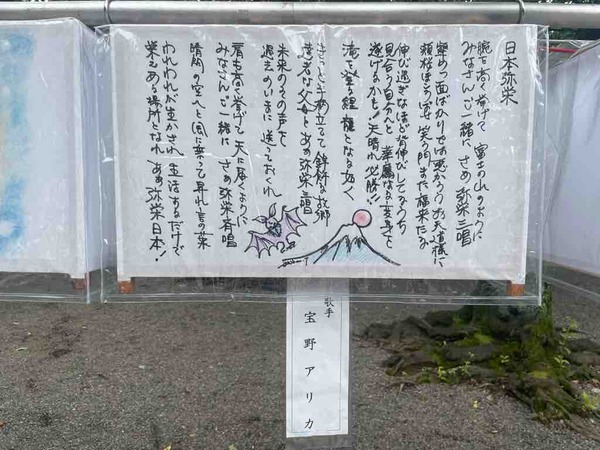 日本弥栄
腕を高く挙げて 富士の山のように
みなさんご一緒に さあ 弥栄三唱
っ面ばかりでは悪かろう お天道様に
笑う門また福来たる
伸び過ぎなほど背伸びして
見合う自分へと 華麗なる変身を
遂げるかも!天晴れ必勝!!
滝を登る鯉 龍となる如く
手柄立てて 錦飾る故郷
父母と ああ 弥栄三唱
未来のその声を
過去のいまに 送っておくれ
肩も高く挙げて 天に届くように
みなさんご一緒に さあ 弥栄斉唱
晴朗の空へと 風に乗って 言の葉
われわれが生かされ 生活するだけで
栄えある場所となれ ああ 弥栄日本!
歌手
宝野アリカ